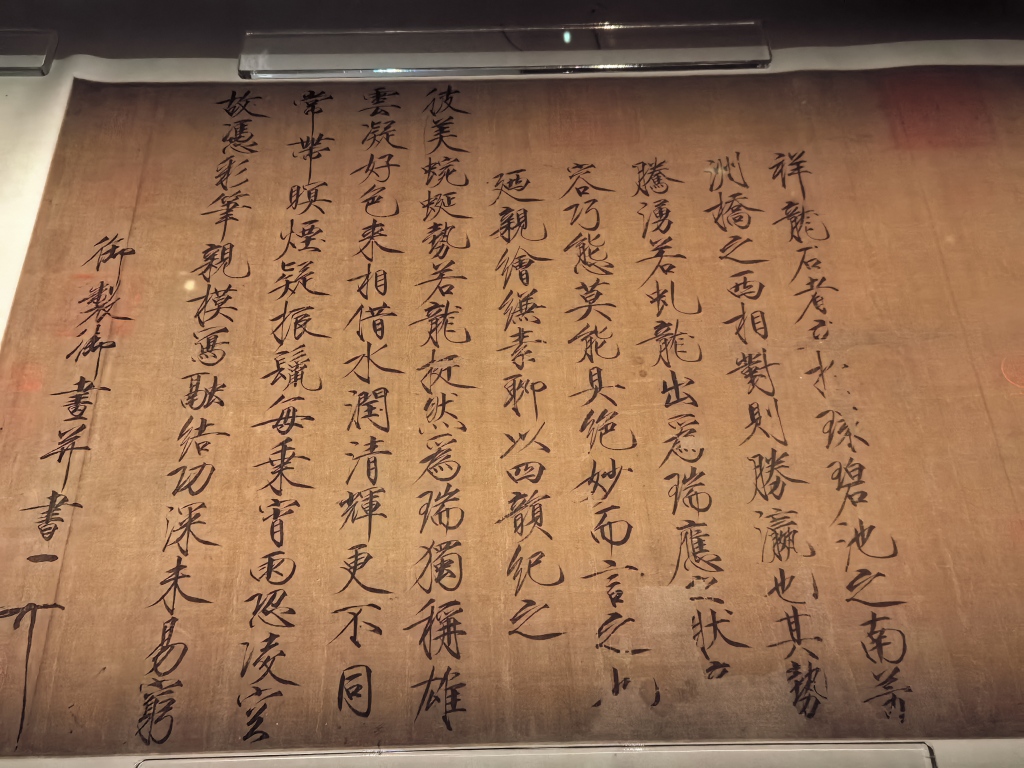 祥龍石者立於環碧池之南芳
洲橋之西相對則勝瀛也其勢
騰湧若虬龍出爲瑞應之狀
容巧態莫能具絕妙而言之
廼親繪縑素聊以四韻紀之
彼美蜿蜒勢若龍挺然爲瑞獨稱雄
雲凝好色來相借水潤清輝更不同
常帶暝煙疑振鬣每乗宵雨恐凌空
故憑彩筆親模寫融結功深未易窮
御製御畫并書